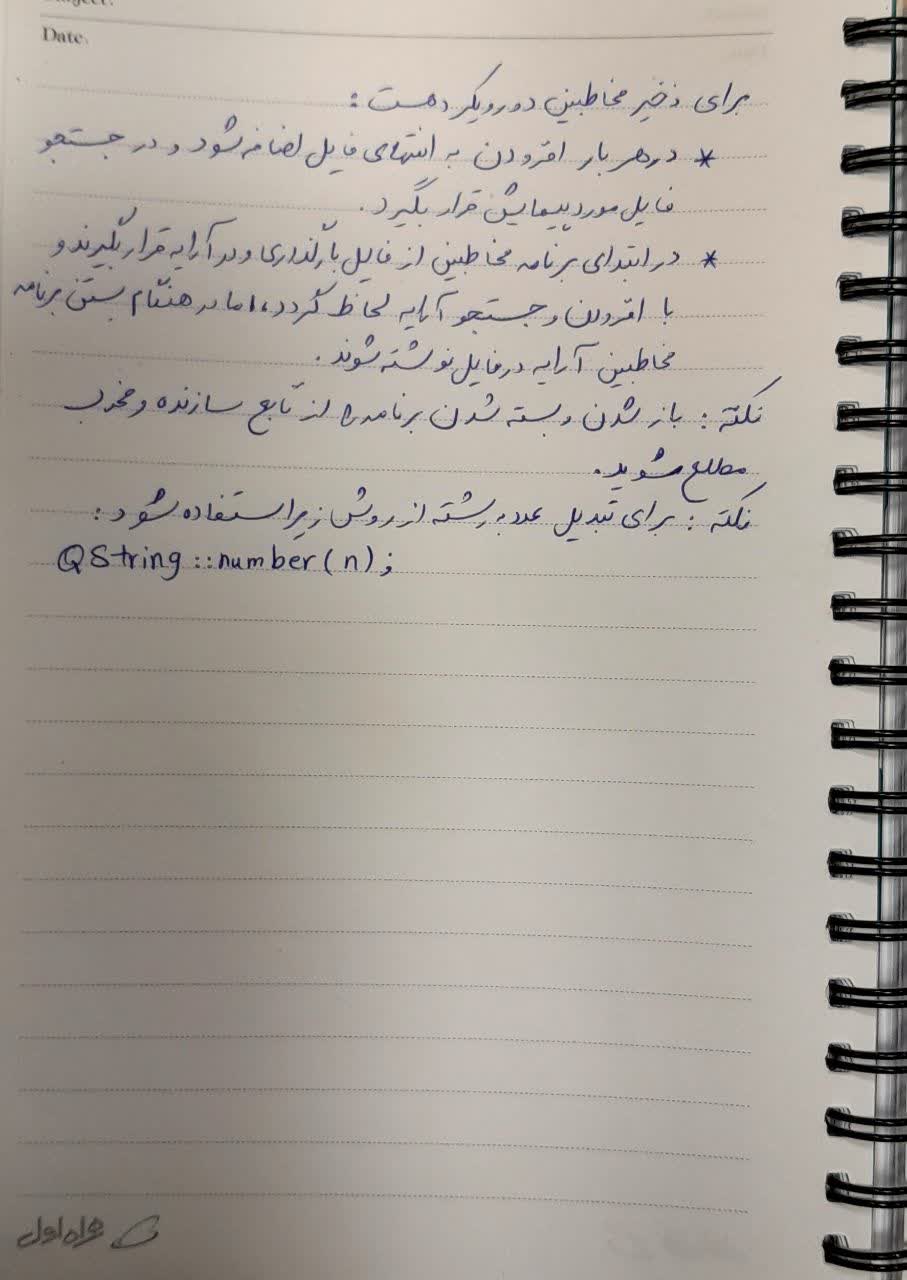 Date.
برای ذخیر مخاطبین دو رویکرد هست :
* در هر بار افزودن به انتهای فایل اضافه شود و در جستجو
فایل مورد پیمایش قرار بگیرد.
* در ابتدای برنامه مخاطبین از فایل بارگذاری و در آرایه قرار بگیرند و
با افزودن و جستجو آرایه لحاظ گردد، اما در هنگام بستن برنامه
مخاطبین آرایه در فایل نوشته شوند.
نکته : باز شدن و بسته شدن برنامه را از تابع سازنده و مخرب
مطلع شوید.
نکته : برای تبدیل عدد به رشته از روش زیر استفاده شود :
QString::number(n);
همراه اول